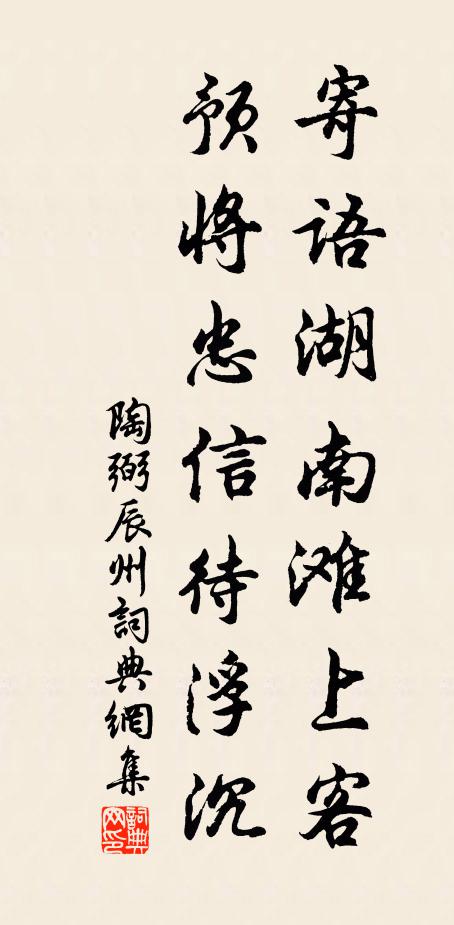 寄语湖南滩上客
预将忠信待浮沉
陶弼辰州詞典網集
詞典網印